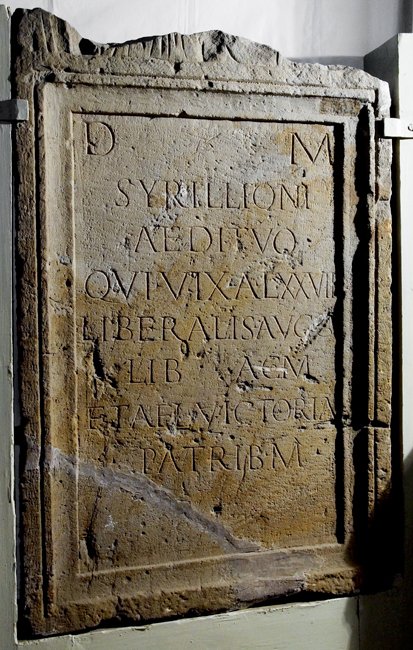 D M
SYRILLIONI
AEDITVO
QVI·VIX·A·LXXVII
LIBERALIS AVG
LIB
ET AEL VICTORIA
PATRI B M